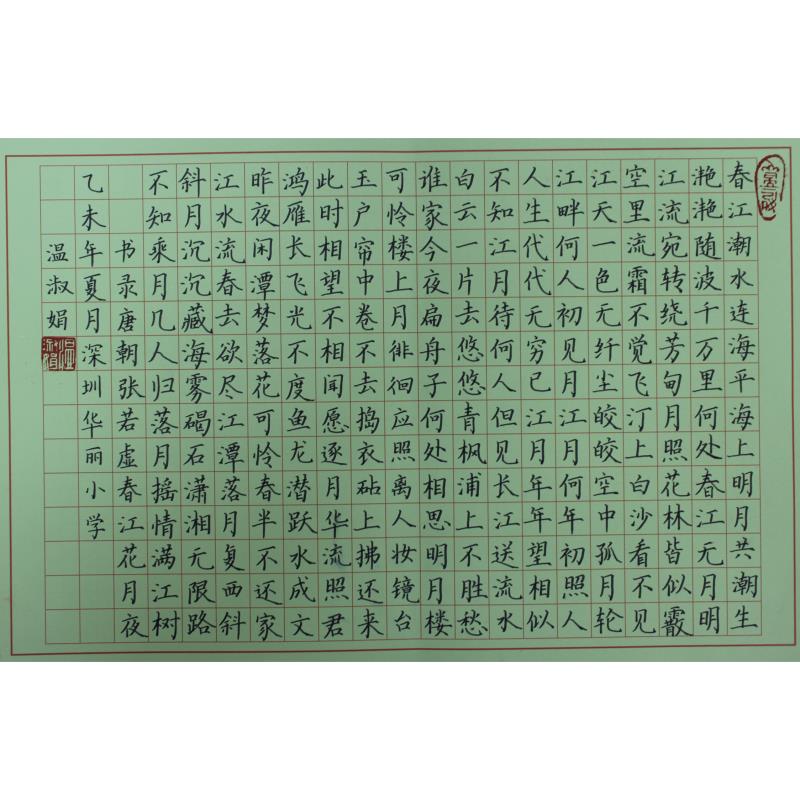 春江潮水连海平海上明月共潮生
滟滟随波千万里何处春江无月明
江流宛转绕芳甸月照花林皆似霰
空里流霜不觉飞汀上白沙看不见
江天一色无纤尘皎皎空中孤月轮
江畔何人初见月江月何年初照人
人生代代无穷已江月年年望相似
不知江月待何人但见长江送流水
白云一片去悠悠青枫浦上不胜愁
谁家今夜扁舟子何处相思明月楼
可怜楼上月徘徊应照离人妆镜台
玉户帘中卷不去捣衣砧上拂还来
此时相望不相闻愿逐月华流照君
鸿雁长飞光不度鱼龙潜跃水成文
昨夜闲潭梦落花可怜春半不还家
江水流春去欲尽江潭落月复西斜
斜月沉沉藏海雾碣石潇湘无限路
不知乘月几人归落月摇情满江树
书录唐朝张若虚春江花月夜
乙未年夏月深圳华丽小学
温淑娟